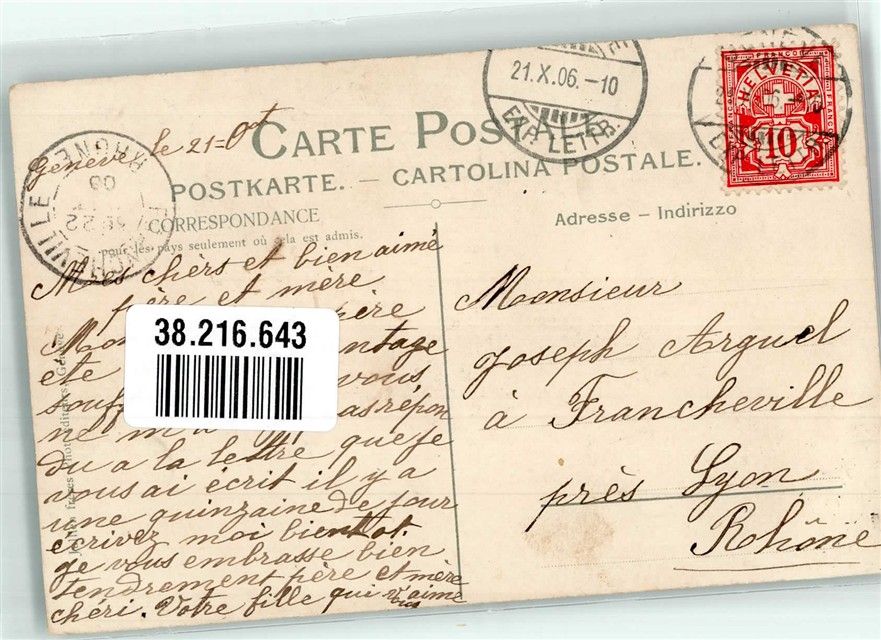 Genève le 21=Oct
CARTE POSTALE
POSTKARTE. — CARTOLINA POSTALE.
CORRESPONDANCE
pour les pays seulement où cela est admis.
Adresse – Indirizzo
21.X.06.-10
EXP. LETTR.
HELVETIA
FRANCO
10
RHONE
FRANCHEVILLE
38.216.643
Mes chèrs et bien aimé
père et mère
père
Mon ntage
été vous,
souff as répon
ne m'a
du a la lettre que je
vous ai écrit il y a
une quinzaine de jour
écrivez moi bientot.
je vous embrasse bien
tendrement père et mère
chéri. Votre fille qui v'aime
vous
Jullien frères Phot. éditeurs Genève
Monsieur
Joseph Arguel
à Francheville
près Lyon
Rohône